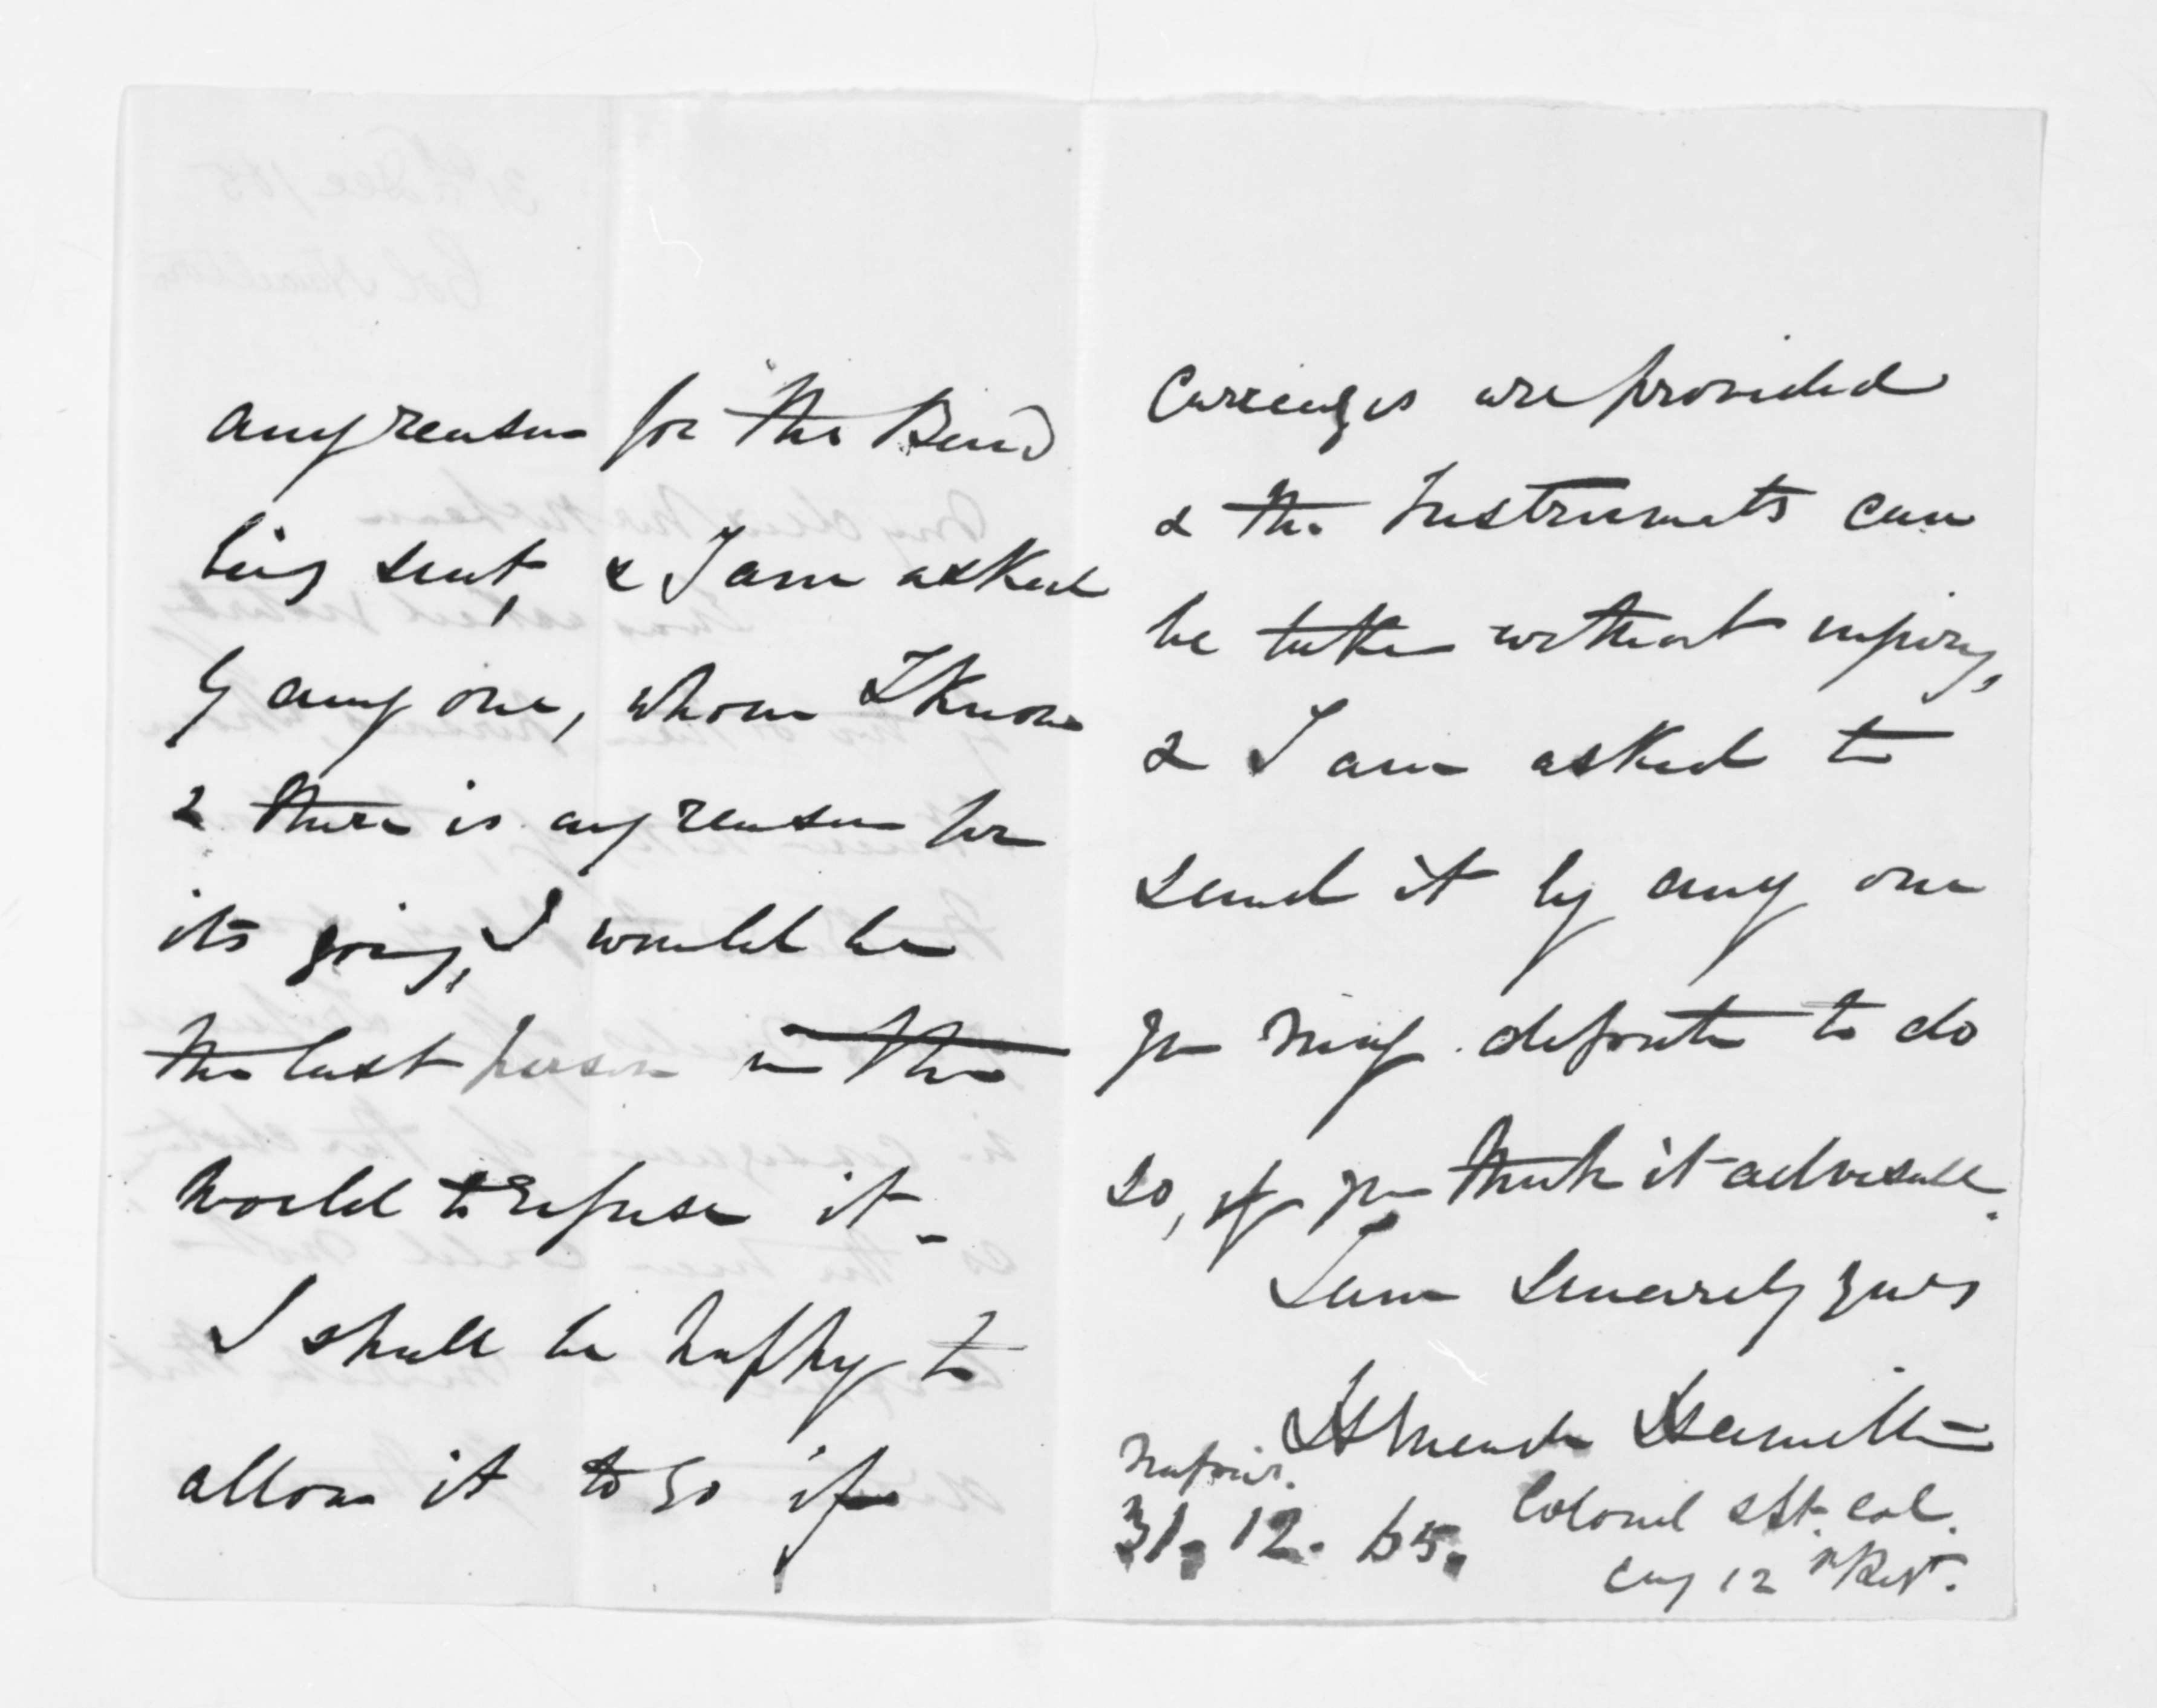 any reason for the Band
being sent, & I am asked
by any one, whom I know
& there is any reason for
its going, I would be
the last person in the
world to refuse it -
I shall be happy to
allow it to go if
Carriages are provided
& the Instruments can
be taken without injury,
& I am asked to
send it by any one
you may depute to do
so, if you think it advisable.
I am Sincerely yours
H Meade Hamilton
Napier.
31. 12. 65.
Colonel & Lt. Col.
Cmg 12th Regt.